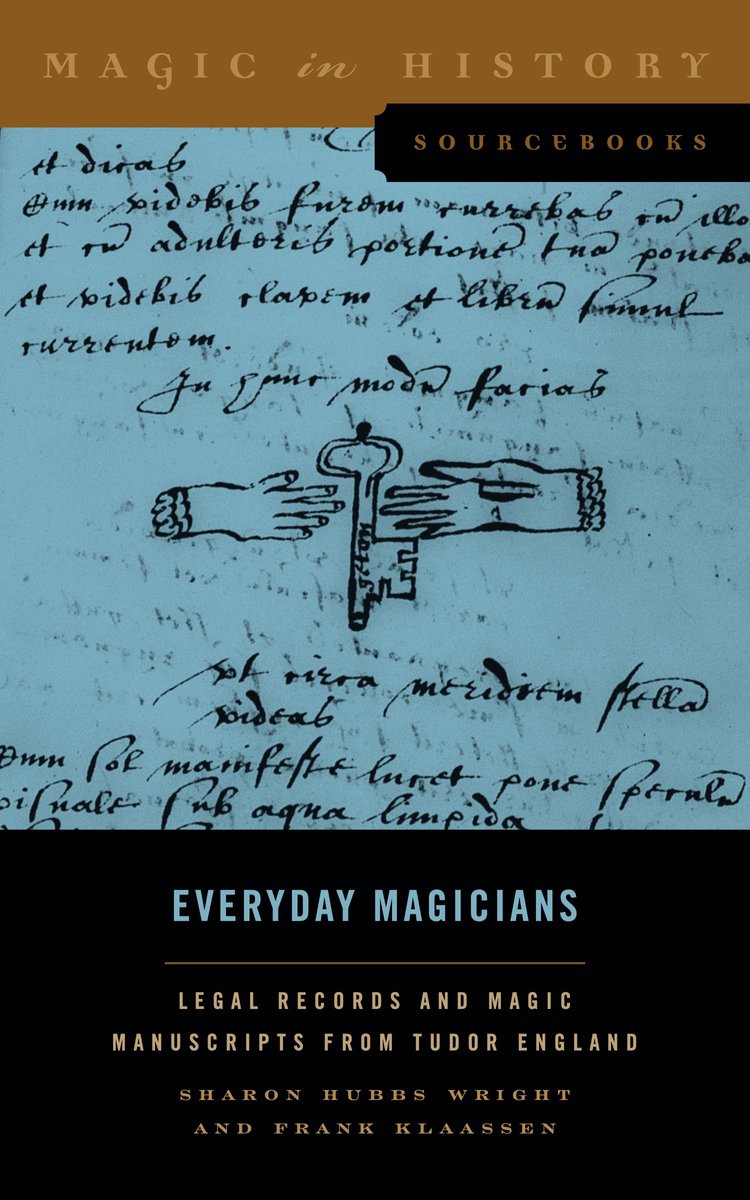 MAGIC in HISTORY
SOURCEBOOKS
et dicas
Dum videbis furem currebas cū illo
et cū adulteris portionē tuā poneba
et videbis clavem et librū simul
currentem.
In hunc modū facias
vt circa meridiem stella
videas
Dum sol manifeste lucet pone speculū
visuale sub aqua limpida
EVERYDAY MAGICIANS
LEGAL RECORDS AND MAGIC
MANUSCRIPTS FROM TUDOR ENGLAND
SHARON HUBBS WRIGHT
AND FRANK KLAASSEN